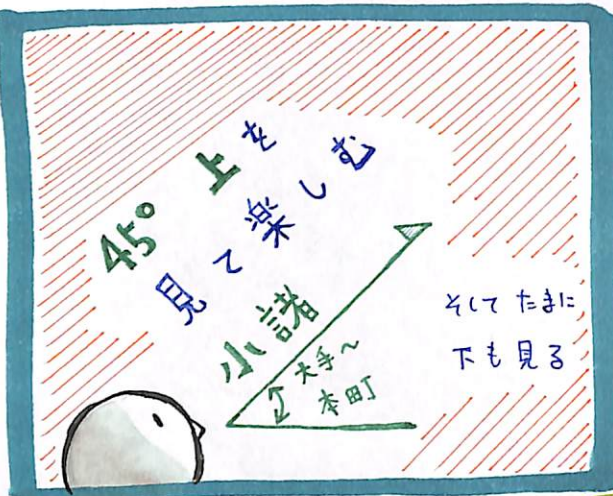 45° 上を
見て楽しむ
小諸
大手〜
本町
そして たまに
下も見る